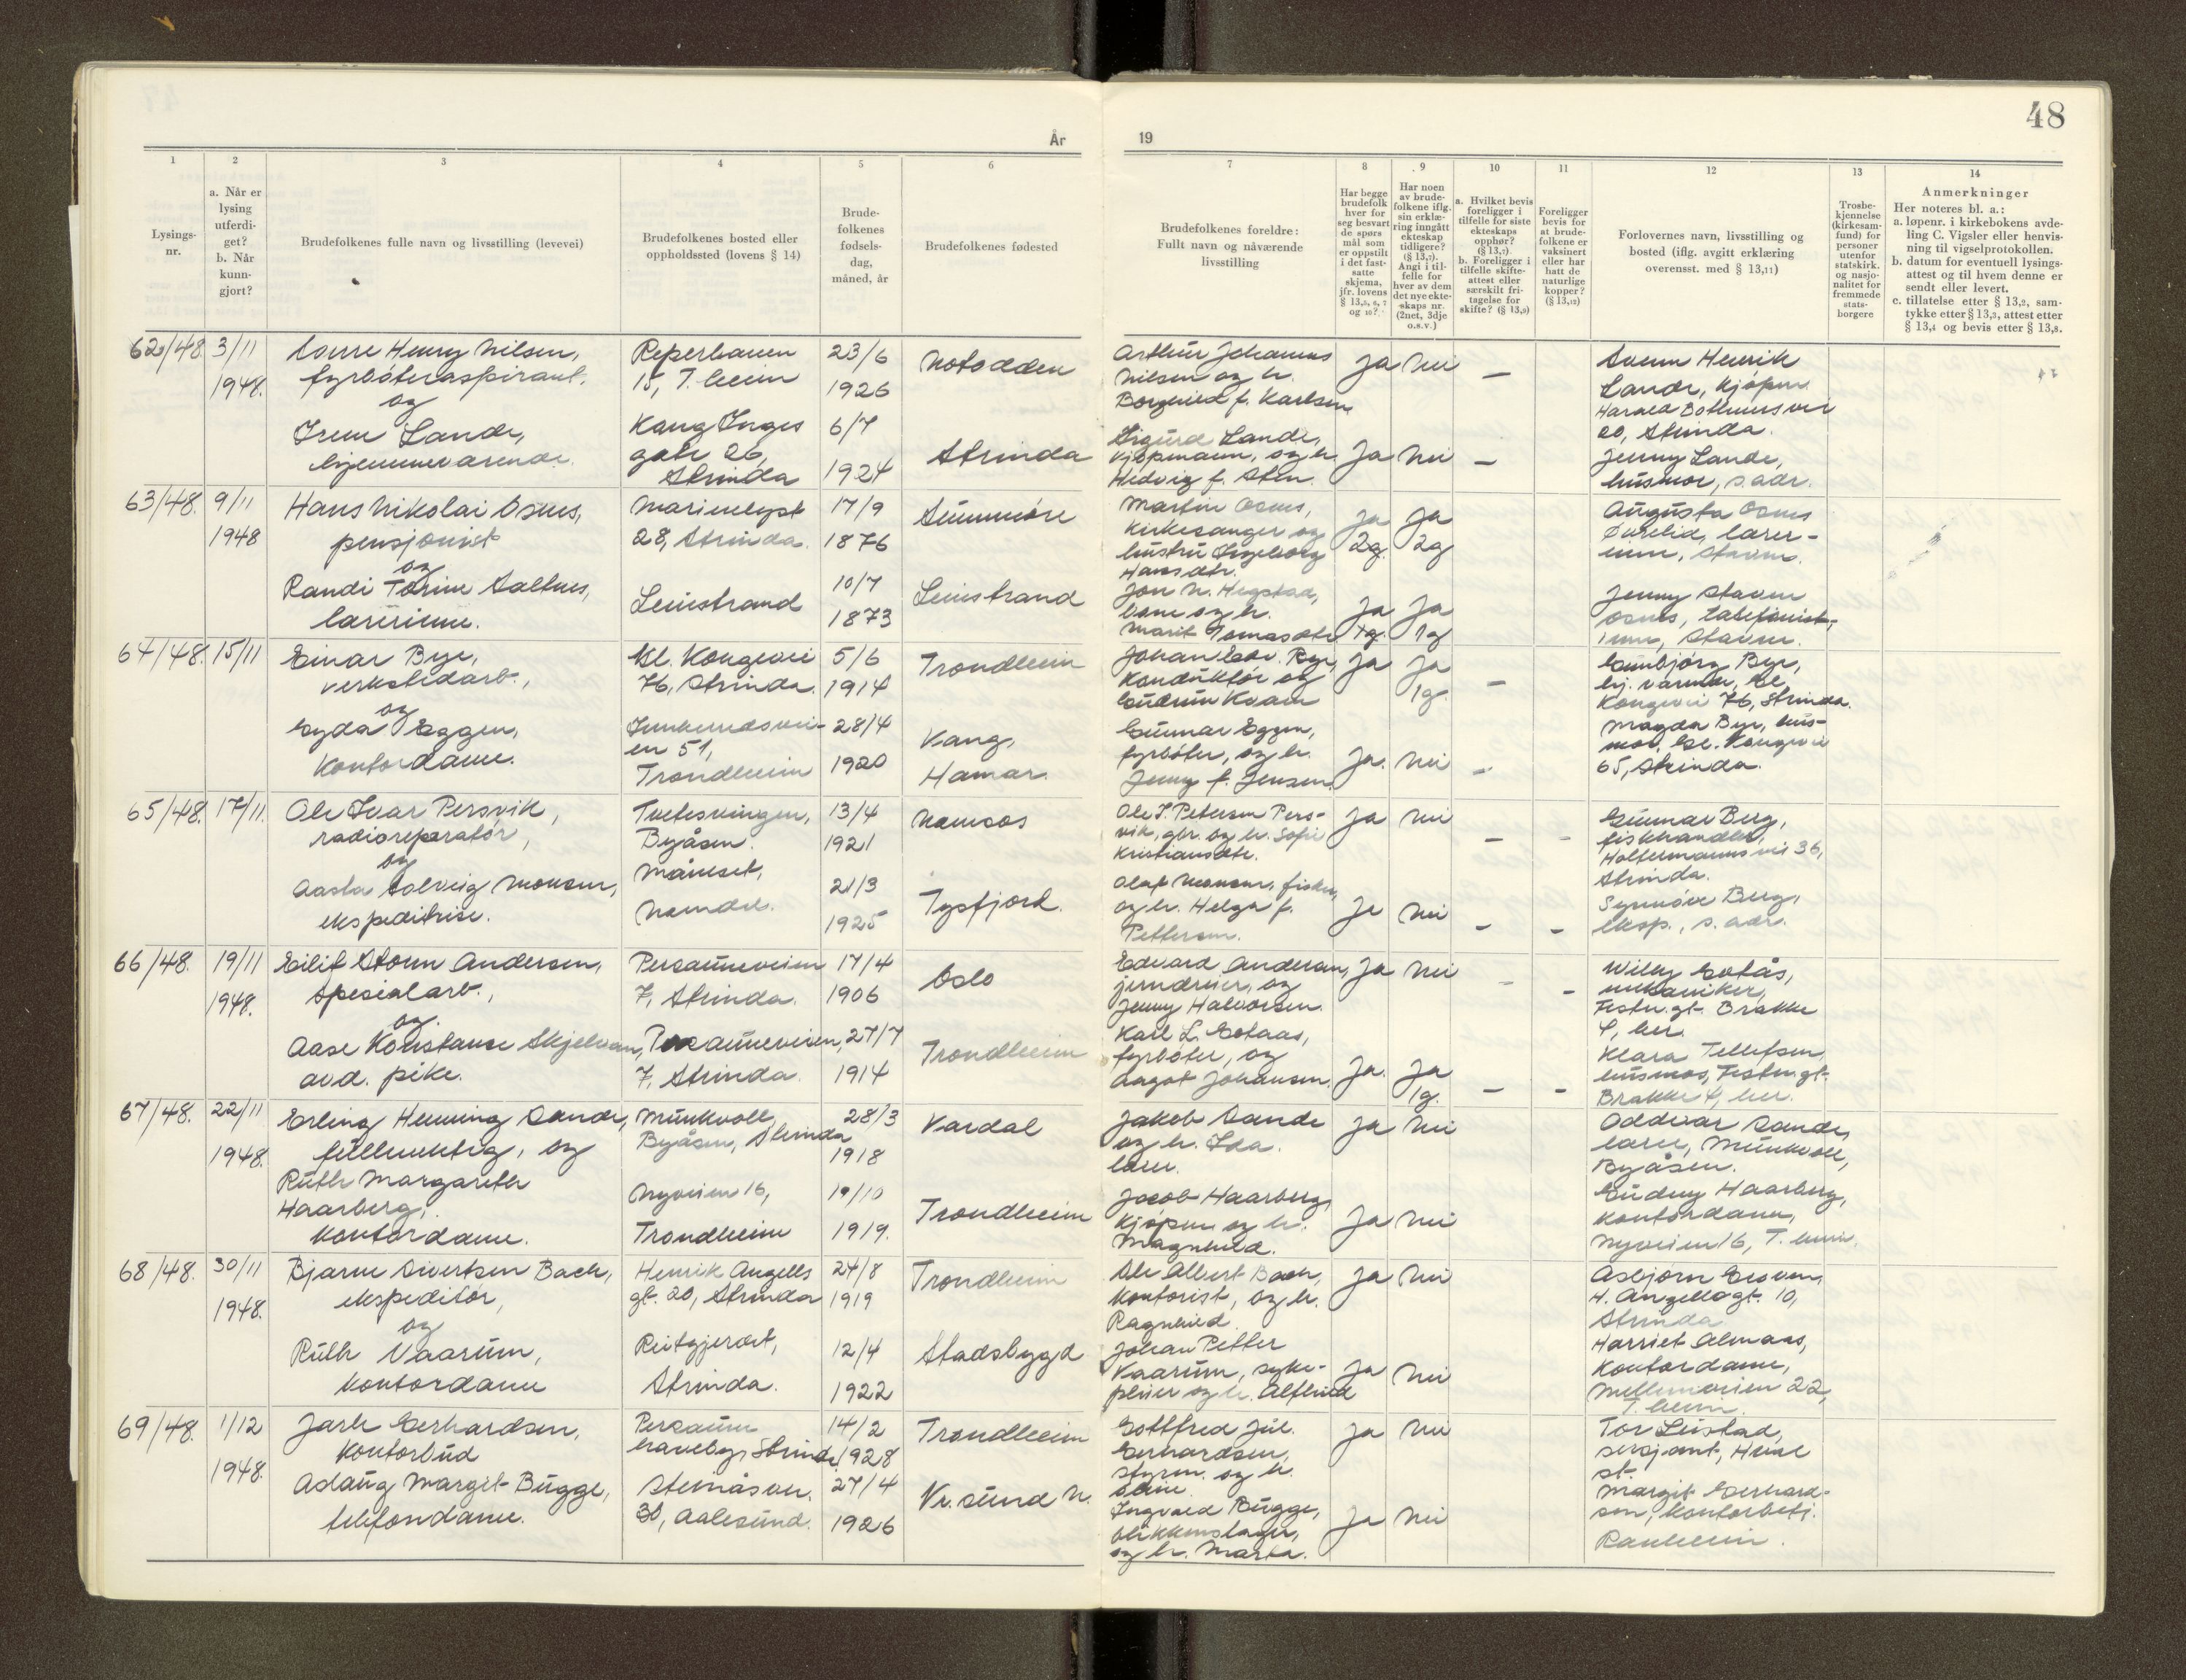 48
År
19
1
2
3
4
5
6
7
8
9
10
11
12
13
14
Lysings-
nr.
a. Når er
lysing
utferdi-
get?
b. Når
kunn-
gjort?
Brudefolkenes fulle navn og livsstilling (levevei)
Brudefolkenes bosted eller
oppholdssted (lovens § 14)
Brude-
folkenes
fødsels-
dag,
måned, år
Brudefolkenes fødested
Brudefolkenes foreldre:
Fullt navn og nåværende
livsstilling
Har begge
brudefolk
hver for
seg besvart
de spørs
mål som
er oppstilt
i det fast-
satte
skjema,
jfr. lovens
§ 13,5, 6, 7
og 10?
Har noen
av brude-
folkene iflg.
sin erklæ-
ring inngått
ekteskap
tidligere?
(§ 13,7).
Angi i til-
felle for
hver av dem
det nye ekte-
skaps nr.
(2net, 3dje
o.s.v.)
a. Hvilket bevis
foreligger i
tilfelle for siste
ekteskaps
opphør?
(§ 13,7)
b. Foreligger i
tilfelle skifte-
attest eller
særskilt fri-
tagelse for
skifte? (§ 13,9)
Foreligger
bevis for
at brude-
folkene er
vaksinert
eller har
hatt de
naturlige
kopper?
(§ 13,12)
Forlovernes navn, livsstilling og
bosted (iflg. avgitt erklæring
overensst. med § 13,11)
Trosbe-
kjennelse
(kirkesam-
fund) for
personer
utenfor
statskirk.
og nasjo-
nalitet for
fremmede
stats-
borgere
Anmerkninger
Her noteres bl. a.:
a. løpenr. i kirkebokens avde-
ling C. Vigsler eller henvis-
ning til vigselprotokollen.
b. datum for eventuell lysings-
attest og til hvem denne er
sendt eller levert.
c. tillatelse etter § 13,2, sam-
tykke etter § 13,3, attest etter
§ 13,4 og bevis etter § 13,8.
62/48.
3/11
1948.
Henry Nilsen,
fyrbøteraspirant.
og
Irene Lande,
hjemmeværende.
Reperbanen
15, T.heim
Kong Inges
gate 26,
Strinda
23/6
1926
6/7
1924
Notodden
Strinda
Arthur Johannes
Nilsen og h.
Borghild f. Karlsen
Sigurd Lande,
kjøpmann, og h.
Hedvig f. Sten.
Ja
Nei
–
Ja
Nei
–
Svenn Henrik
Lande, kjøpm.
Harald Bothners vei
20, Strinda.
Jenny Lande,
husmor, s.adr.
63/48.
9/11
1948
Hans Nikolai Osnes,
pensjonist
og
Randi Torine Saltnes,
lærerinne.
Marienlyst
28, Strinda.
Leinstrand
17/9
1876
10/7
1873
Sunnmøre
Leinstrand
Martin Osnes,
kirkesanger og
hustru Ingeborg
Hansdtr.
Jon N. Hegstad,
bone og h.
Marit Tomasdtr
Ja
2g.
Ja
2g
Ja
1g.
Ja
1g
Augusta Osnes
Øvrelid, lærer-
inne, Stavern.
Jenny Stavern
Osnes, telefonist-
inne, Stavern.
64/48.
15/11
Einar Bye,
verkstedarb.,
og
Gyda Eggen,
kontordame.
Gl. Kongevei
76, Strinda.
en 51,
Trondheim
5/6
1914
28/4
1920
Trondheim
Vang,
Hamar.
Johan Edv. Bye,
konduktør og
Gudrun Kvam
Gunnar Eggen,
fyrbøter, og h.
Jenny f. Jensen.
Ja
Ja
1g.
–
Ja.
Nei
–
Gunbjørg Bye,
hj. værende, Gl.
Kongevei 76, Strinda.
Magda Bye, hus-
mor. Gl. Kongevei
65, Strinda.
65/48.
17/11.
Ole Ivar Persvik,
radioreparatør,
og
Aasta Solveig Monsen,
ekspeditrise.
Byåsen.
Namdal.
13/4
1921
21/3
1925
Namsos
Tysfjord.
Ole J. Petersen Pers-
vik, gbr. og h. Sofie
Kristiansdtr.
Olaf Monsen, fisker,
og h. Helga f.
Pettersen.
Ja
Nei
–
–
Ja
Nei
–
–
Gunnar Berg,
fiskhandler,
Holtermanns vei 36,
Strinda.
Synnøve Berg,
eksp., s. adr.
66/48.
19/11
1948.
Eilif Storm Andersen,
spesialarb.,
og
Aase Konstanse Skjelvan,
avd. pike.
Persauneveien
7, Strinda.
Persauneveien,
7, Strinda.
17/4
1906
27/7
1914
Oslo
Trondheim
Edvard Andersen,
jerndreier, og
Jenny Halvorsen.
Karl L. Gotaas,
fyrbøter, og
Aagot Johansen.
Ja
Nei
–
–
Ja.
Ja
1g.
–
–
Willy Gotås,
mekaniker,
Festn.gt. Brakke
4, her.
Klara Tellefsen,
husmor, Festn.gt.
Brakke 4, her.
67/48.
22/11
1948.
Erling Henning Sande,
fullmektig, og
Ruth Margareth
Haarberg,
kontordame.
Munkvoll
Byåsen, Strinda
Nyveien 16,
Trondheim
28/3
1918
19/10
1919.
Vardal
Trondheim
Jakob Sande
og h. Ida.
lærer.
Jacob Haarberg,
kjøpm. og h.
Magnhild.
Ja
Nei
Ja
Nei
Oddvar Sande,
lærer, Munkvoll,
Byåsen.
Gudny Haarberg,
kontordame,
Nyveien 16, T.heim.
68/48.
30/11
1948.
Bjarne Sivertsen Bach,
ekspeditør,
og
Ruth Vaarum,
kontordame
Henrik Angells
gt. 20, Strinda
Reitgjerdet,
Strinda.
24/8
1919
12/4
1922
Trondheim
Stadsbygd
Ole Albert Bach,
kontorist, og h.
Ragnhild.
Johan Petter
Vaarum, syke-
pleier og h. Alfhild
Ja
Nei
Ja
Nei
Asbjørn Grøven,
H. Angellsgt. 10,
Strinda
Harriet Almaas,
kontordame,
Mellomveien 22,
T.heim.
69/48.
1/12
1948.
Jarle Gerhardsen,
kontorbud
Aslaug Margit Bugge,
telefondame.
Persaune
haveby, Strinda
30, Aalesund.
14/2
1928
27/4
1926
Trondheim
Kr.sund N.
Gottfred Jul.
Gerhardsen,
styrm. og h.
Ingvald Bugge,
blikkenslager,
og h. Marta.
Ja
Nei
Ja
Nei
Tor Leistad,
sersjant,
st.
Margit Gerhard-
sen, kontorbetj.
Ranheim.